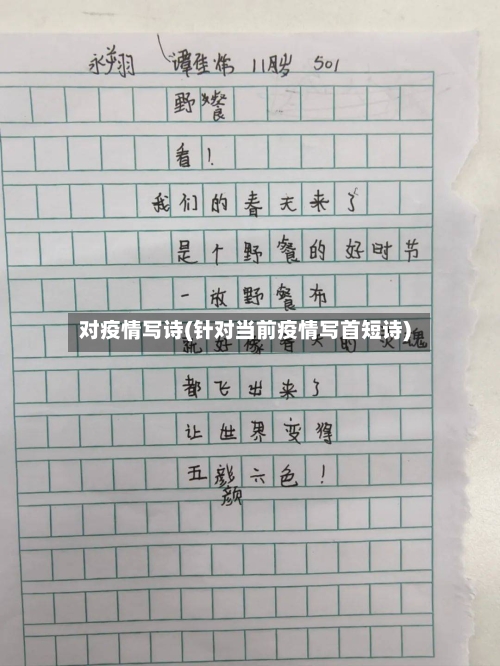 永羽 谭佳炜 11岁 501
野餐
看！
我们的春天来了
是个野餐的好时节
一放野餐布
对疫情写诗(针对当前疫情写首短诗)
就好像春天的灵魂
都飞出来了
让世界变得
五颜六色！
颜